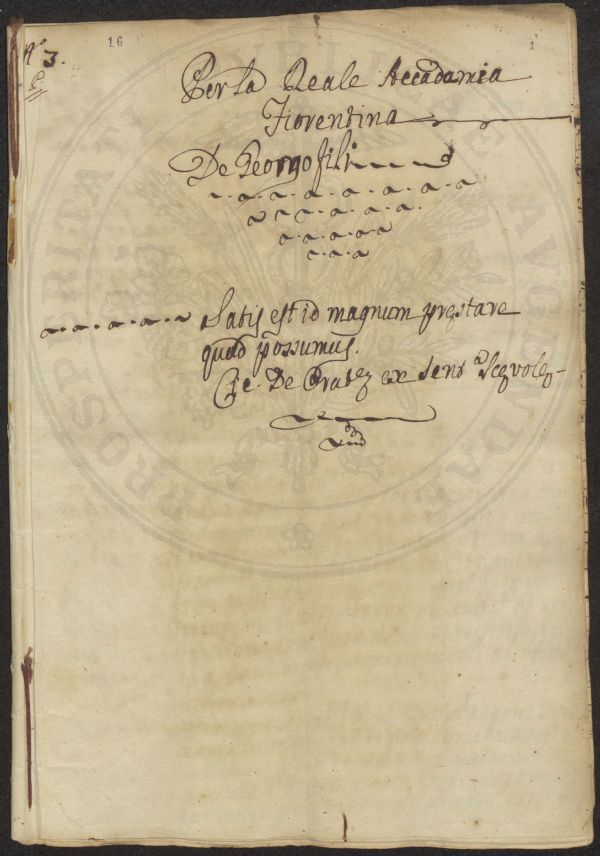 N° 3.
16
1
Per la Reale Accadamia
Fiorentina
De Georgofili
Satis est id magnum prestare
quod possumus.
Cic. De Orat ex sent Scęvolę
PROSPERITATI PUBLICAE AUGENDAE